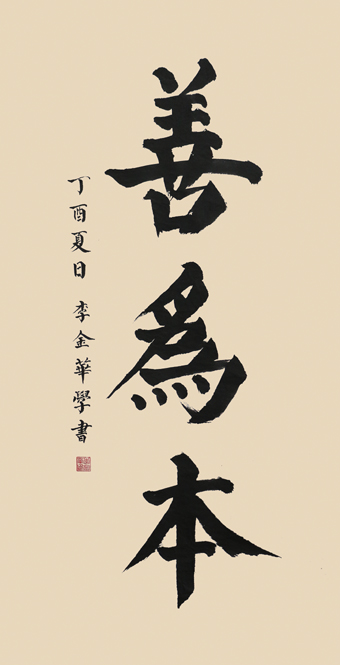 善為本
丁酉夏日 李金華學書